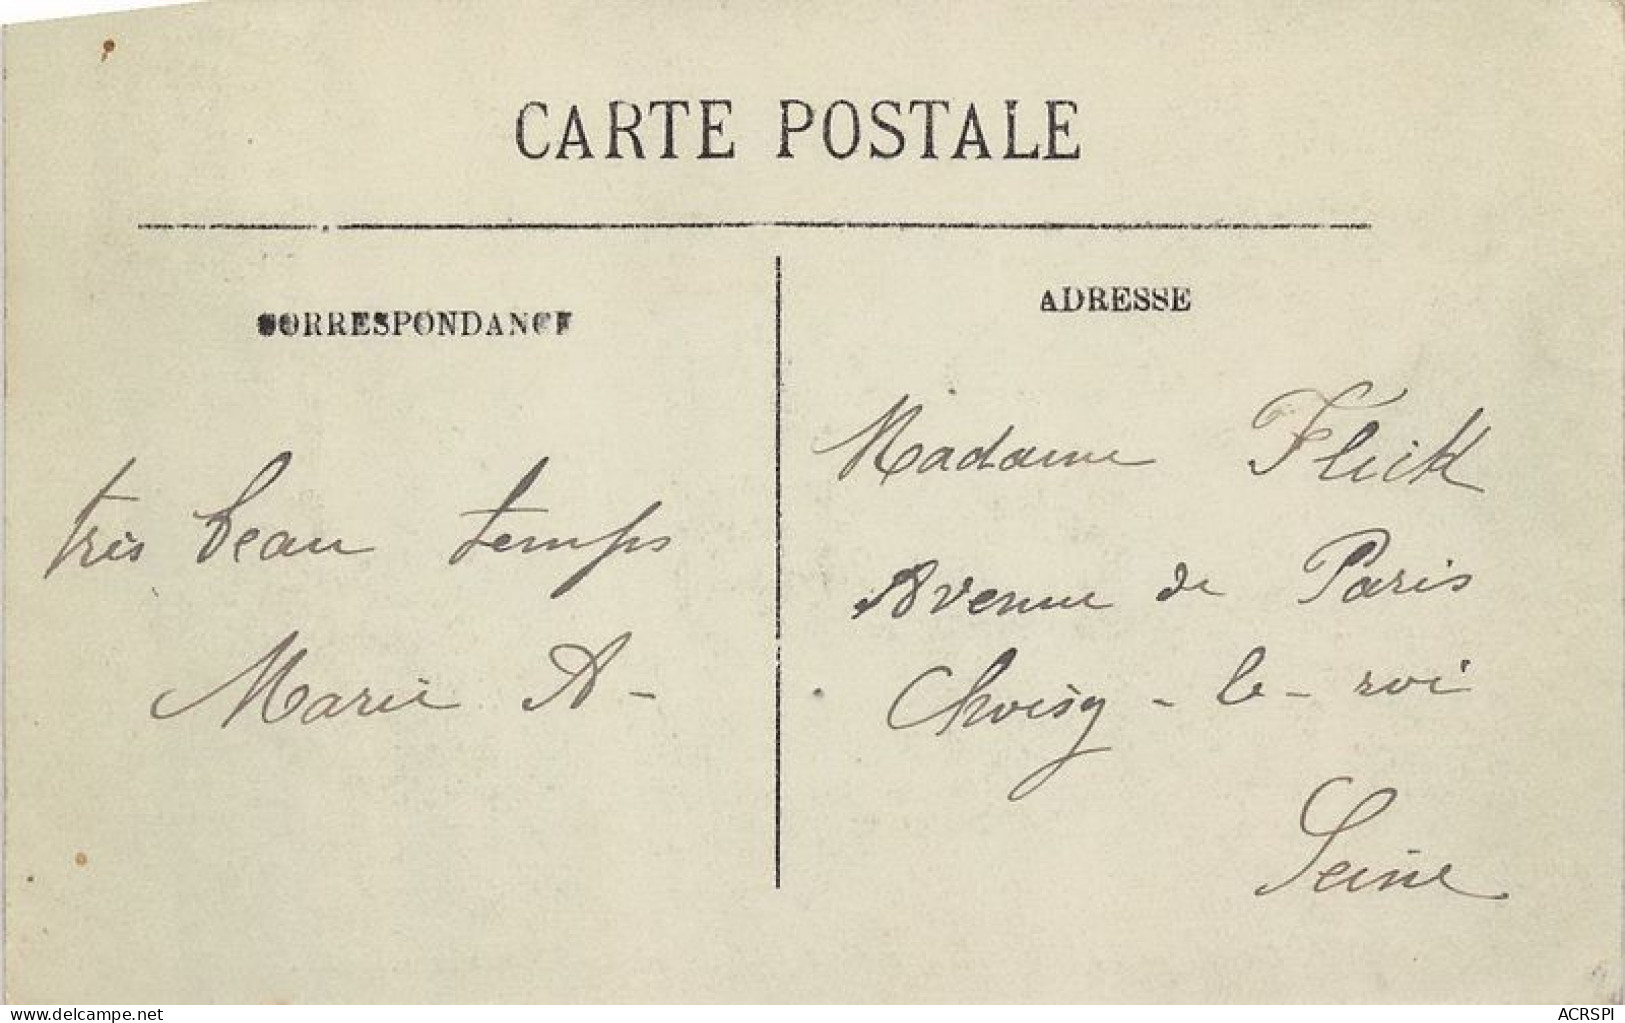 CARTE POSTALE
CORRESPONDANCE
ADRESSE
très beau temps
Marie A-
Madame Flick
Avenue de Paris
Choisy-le-roi
Seine
www.delcampe.net
ACRSPI